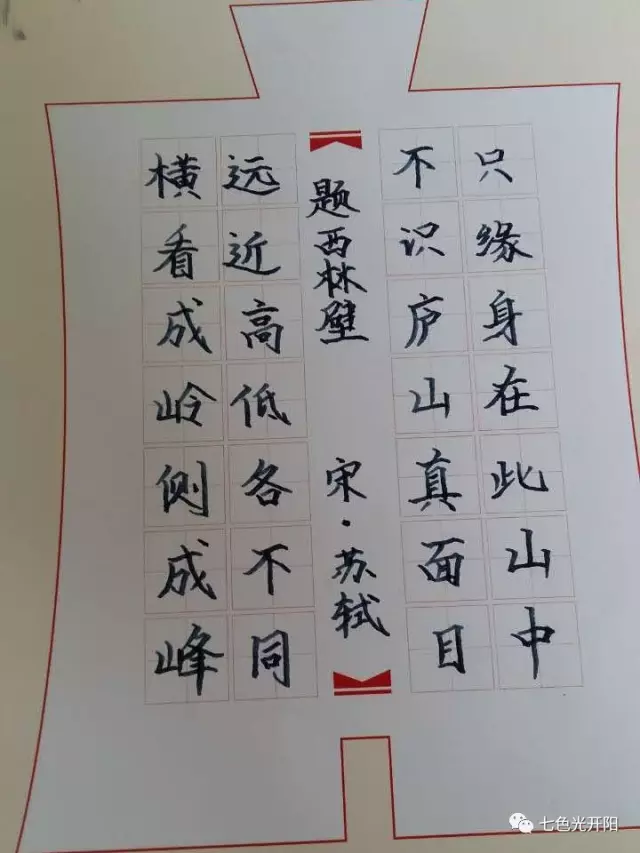 题西林壁
宋·苏轼
横看成岭侧成峰
远近高低各不同
不识庐山真面目
只缘身在此山中
七色光开阳